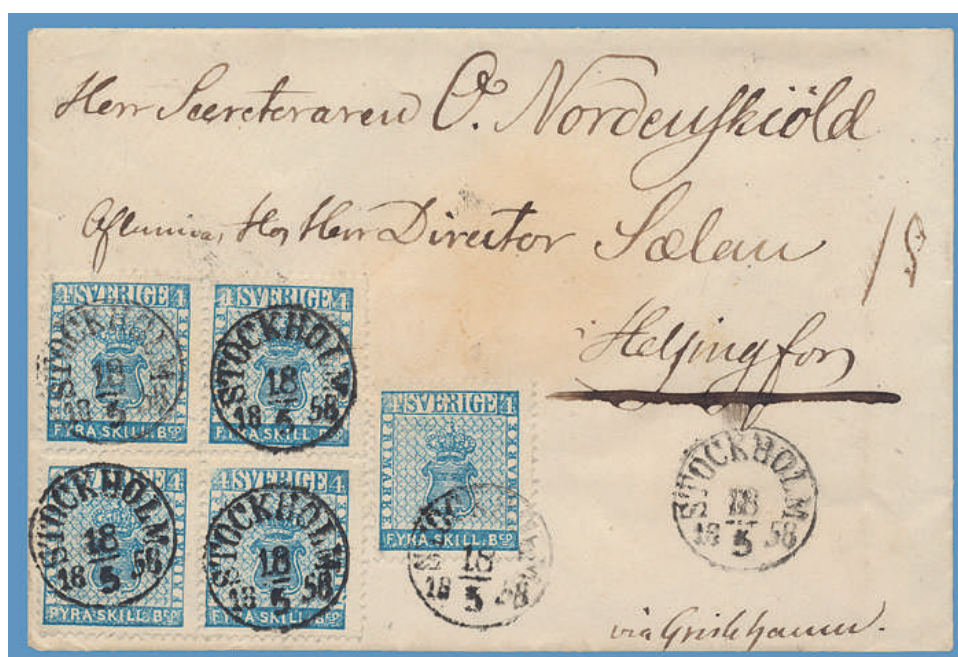 Herr Secreteraren O. Nordenskiöld
Hos Herr Director Sælan
Helsingfors
via Grislehamn.
4 SVERIGE 4
FRIMARKE
FYRA SKILL. Bco
STOCKHOLM
18
5
18 58
4 SVERIGE 4
FYRA SKILL. Bco
STOCKHOLM
18
5
18 58
4 SVERIGE 4
FYRA SKILL. Bco
STOCKHOLM
18
5
18 58
4 SVERIGE 4
FYRA SKILL. Bco
STOCKHOLM
18
5
18 58
4 SVERIGE 4
FRIMARKE
FYRA SKILL. Bco
STOCKHOLM
18
5
18 58
STOCKHOLM
18
5
18 58